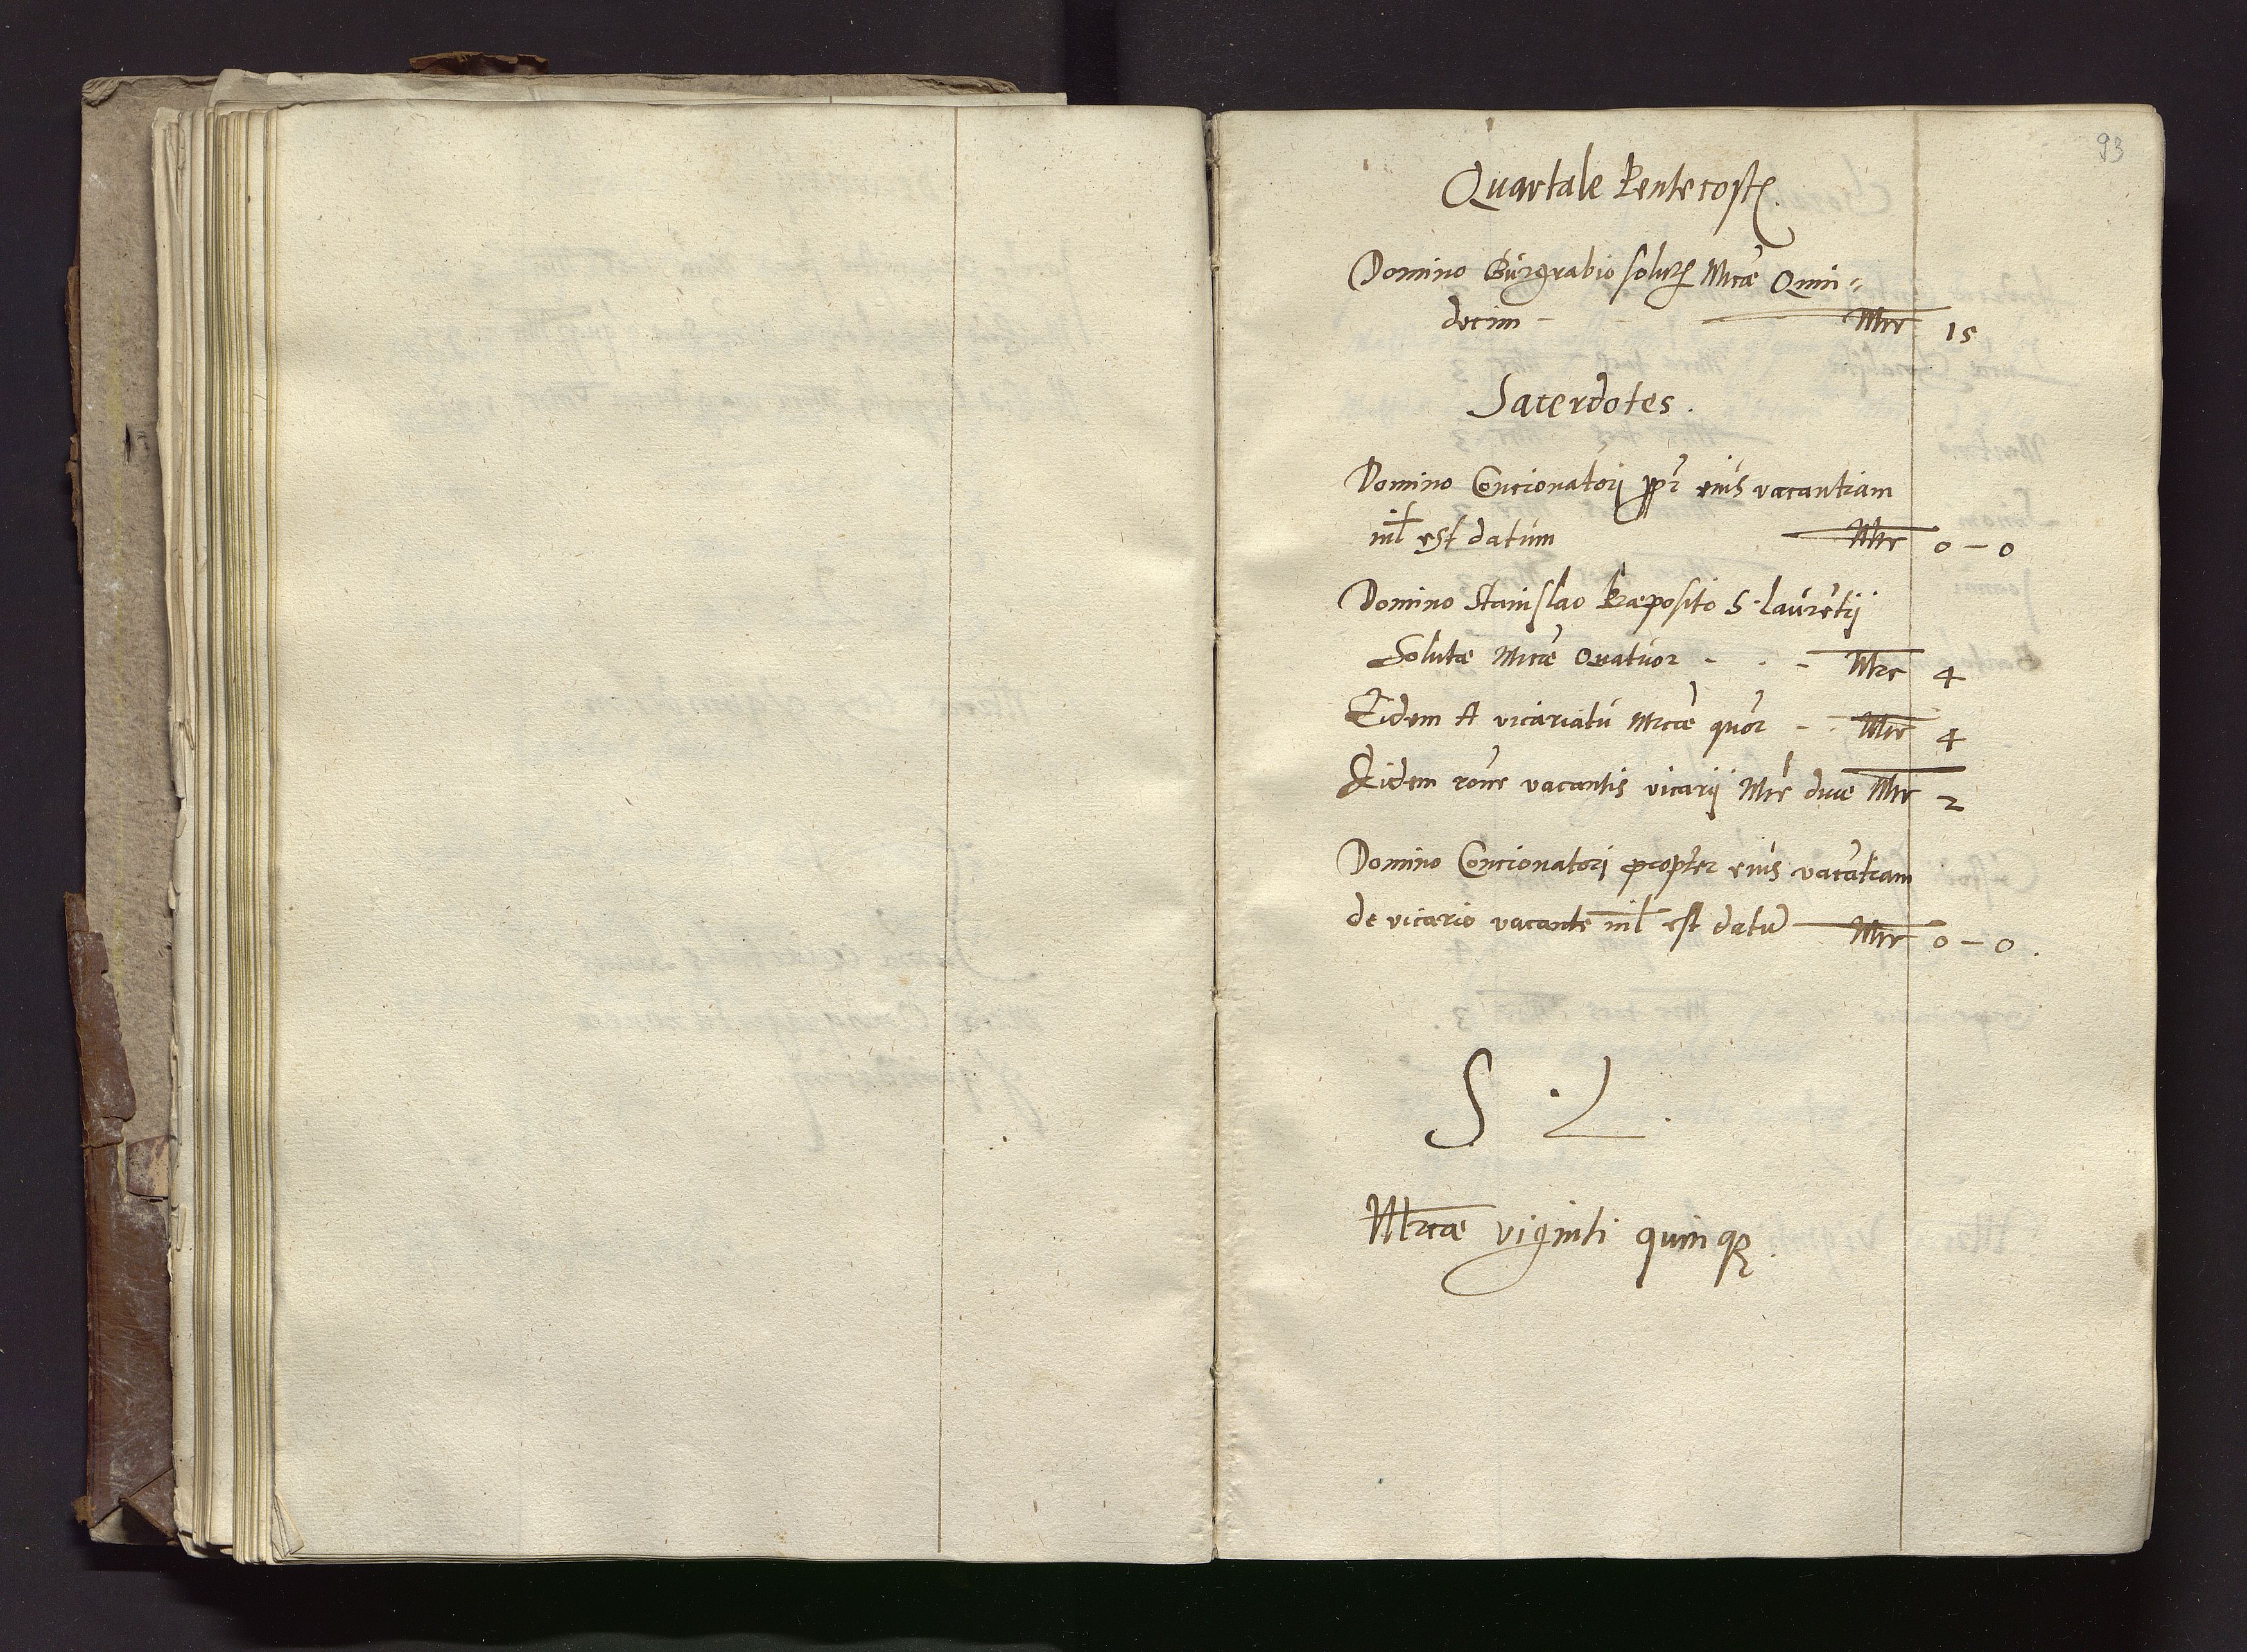 93
Quartale Pentecost
Domino Burgrabio solut Mrcae Quin=
decim - Mrc 15
Sacerdotes.
Domino Concionatorj ppr eius vacantiam
nil est datum Mrc 0 – 0
Domino Stanislao Praeposito S. laure̅tij
Solutae Mrcae Quatuor - . - Mrc 4
Eidem A vicariatu Mrcae quor - . Mrc 4
Eidem rone vacantis vicarij Mrc duae Mrc 2
Domino Concionatorj propter eius vaca̅tiam
de vicario vacante nil est datu̅ Mrc 0 – 0.
S. L.
Mrcae viginti quinq.